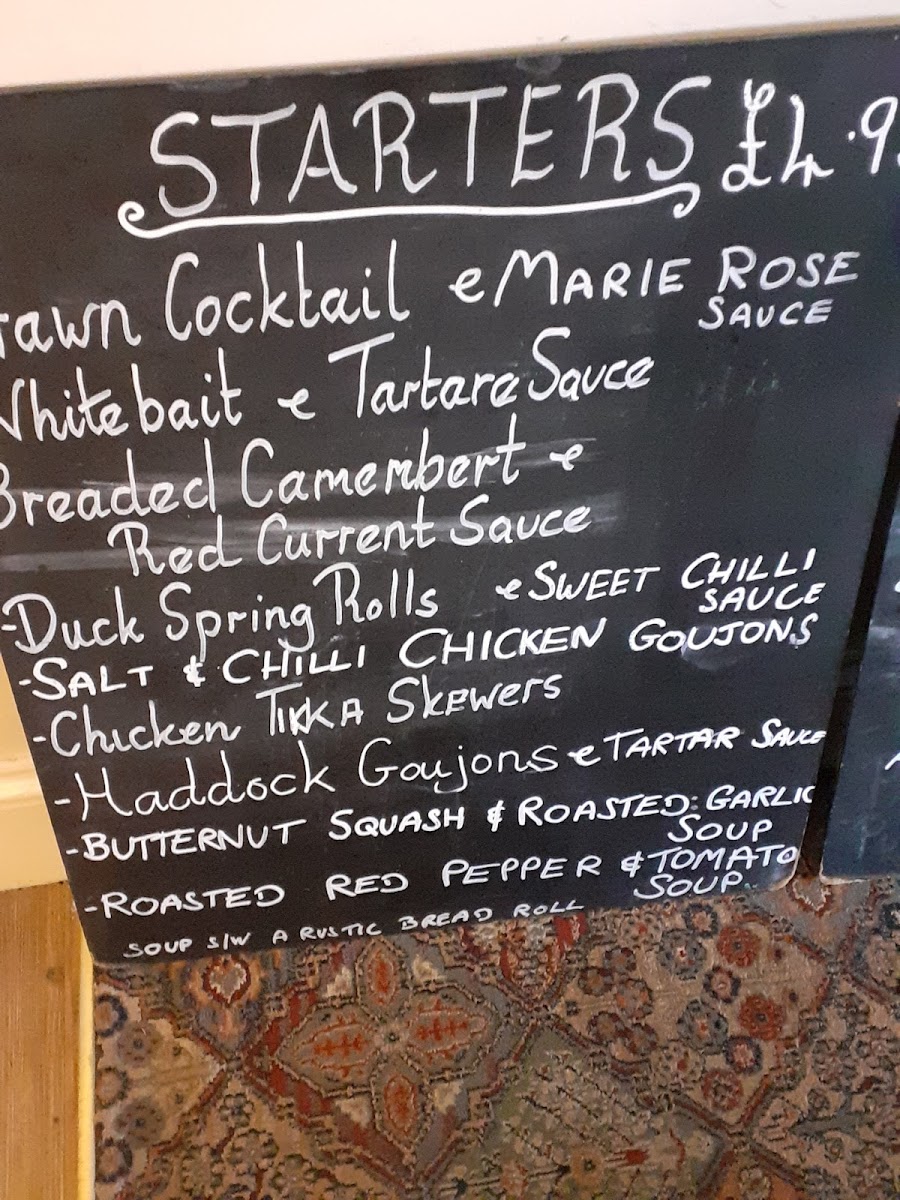 STARTERS £4.9
rawn Cocktail e MARIE ROSE
SAUCE
Whitebait e Tartare Sauce
Breaded Camembert e
Red Current Sauce
-Duck Spring Rolls e SWEET CHILLI
SAUCE
-SALT & CHILLI CHICKEN GOUJONS
-Chicken TIKKA Skewers
-Haddock Goujons e TARTAR SAUCE
-BUTTERNUT SQUASH & ROASTED GARLIC
SOUP
-ROASTED RED PEPPER & TOMATO
SOUP
SOUP S/W A RUSTIC BREAD ROLL